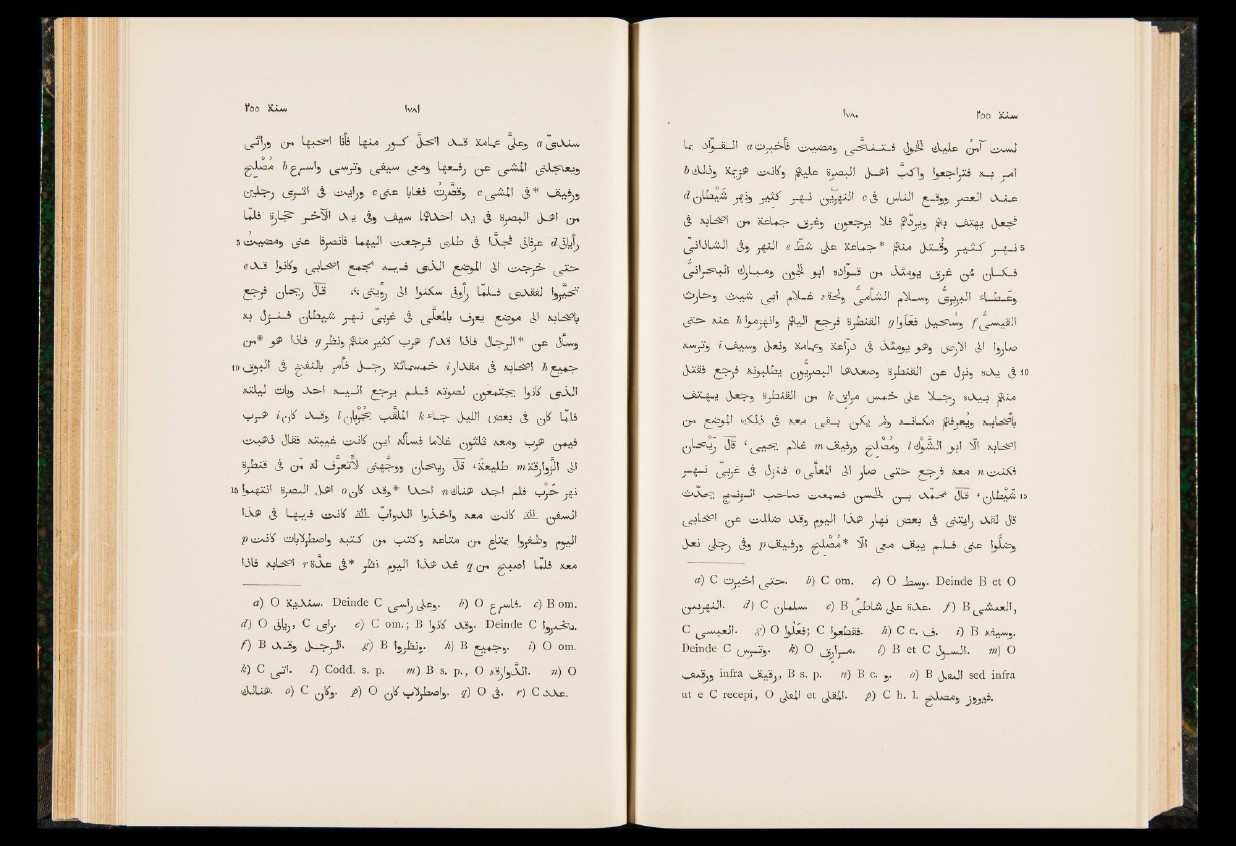 سنة ٢٥٥ ١٧٨٠
لست آمن عليك الخول فتنحّى ومضيت فأخبرت a القوّاد بما
امر به فتراجعوا وأكبّ اهل البصرة عليهم وكانت هزيمة وذلك b
عند العصر ووقع الناس فى c النهرين نهر كثير ونهر شيطان d
فجعل يهتف بهم ويردّهم فلا يرجعون وغرق جماعة من اصحابه فى
5 نهر كثير وقُتل منهم جماعة* على شطّ e النهر وفى الشاذانىّ
فكان ممن غرق يومئذ من قوّاده ابو الجون ومبارك البحرانىّ
وعطاء البربرىّ وسلام الشأمىّ ولحقه e غلام ابى شيث وحارث
القيسىّ f وسحيل فعلوا g القنطرة فرجع اليهم وانهزموا h عنه حتى
صاروا الى الارض وهو يومئذ فى درّاعة وعمامة ونعل وسيف i وترسه
10 فى يده ونزل عن القنطرة وصعدها البصريّون يطلبونه فرجع فقتل
منهم بيده رجلا على خمس مراقٍ k من القنطرة وجعل يهتف
بأصحابه ويعرفهم مكانه ولم يكن بقى معه فى ذلك الموضع من
اصحابه الّا ابو الشَّوْك l ومُصْلح ورفيق m غلام يحيى، قالّ رَيْحان
فكنت n معه فرجع حتى صار الى المعلّى o فنزل فى غربىّ نهر
15 شيطان، قالّ محمّد بن الحسن فسمعت صاحب الزنج يحدّث
قال لقد رايتنى فى بعض نهار هذا اليوم وقد ضللت عن اصحابى
وضلّوا عنى فلم يبق معى الّا *مُصْلح ورفيق p وفى رجلى نعل
a) C حتى اخبرت. b) C om. c) O وسط. Deinde B et O
النهربين. d) C سلمان. e) B عدة على شاطئ. f) B العبشى,
C العبسى. g) O فعلوا; C فقطعوا. h) C c. ف. i) B وسيفه.
Deinde C وترس. k) O مراق. l) B et C السول. m) O
ورقيق infra ورفيق, B s. p. n) B c. و. o) B المعلى sed infra
ut e C recepi, O المعلى et المقلى. p) C h. l. فيروز ومصلح.
سنة ٢٥٥ ١٧٨١
سندىّ a وعلىّ عمامة قد انحلّ كور منها فأنا اسحبها من ورائى
ويعجلنى المشى عن رفعها ومعى سيفى وترسى واسرع b مُصْلح
ورفيق *فى المشى c وقصّرتُ فغابا عنى c ورايت فى اثرى رجلين
من اهل البصرة فى يد احدها سيف وفى يد الآخر حجارة فلمّا
5 رأيانى d عرفانى فجدّا فى طلبى فرجعت اليهما فانصرفا عنى ومضيت
حتى خرجت الى الموضع الذى فيه مجمع اصحابى وكانوا قد e
تحيّروا لفقدى فلمّا رأوْنى سكنوا الى رؤيتى، قالّ ريحان فرجع
بأصحابه الى موضع يعرف بالمعلّى فى غربىّ نهر شيطان فنزل به
وسأل عن *الرجال فاذا قد f هرب كثير منهم ونظر g فاذا هو *من
10 جميع h اصحابه فى مقدار i خمسمائة رجل فأمر بالنفخ فى البوق
الذى كانوا يجتمعون لصوته فلم يرجع اليه احد وبات ليلته
فلما كان فى بعض الليل جاء k الملقّب بجُرْبان l وقد كان i هرب
فيمن هرب ومعه ثلثون غلاما فسأله اين كانت غيبته فقال ذهبت
الى الزوارقة m طليعة، قالّ ريحان ووجّهنى لأتعرّف له من فى قنطرة
15 نهر حَرْب فلم اجد هناك n احدا *وقد كان o اهل البصرة انتهبوا
السفن التى كانت معه واخذوا الدوابّ التى كانت فيها فى هذا
اليوم وظفروا بمتاع من متاعه وكتب من كتبه واصطرلابات كانت p
معه فلما اصبح من q غد هذا اليوم نظر *فى عدّة r اصحابه فاذا
a) O سنديّة. Deinde C وعلى راسى. b) O فاسرع. c) B om.
d) O ريانى, C راى. e) C om.; B وقد كانوا. Deinde C
f) B الرجل وقد. g) B ونظروا. h) B وجميع. i) O om.
k) C اتى. l) Codd. s. p. m) B s. p., O n) O
هنالك. o) C وكان. p) O واصطرلاب كان. q) O فى. r) C عدد.